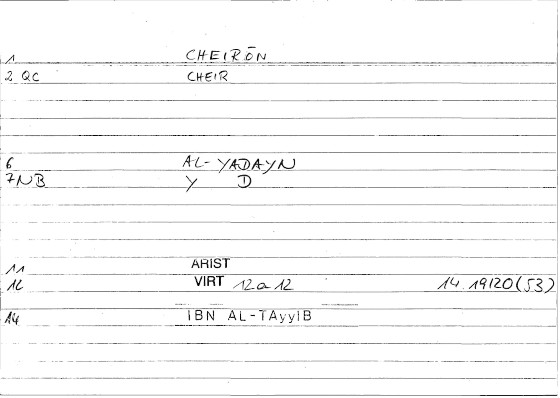 1 CHEIRŌN
2 QC CHEIR
6 AL-YADAYN
7NB Y D
11 ARIST
12 VIRT 12a12 14.19/20(53)
14 IBN AL-TAyyIB